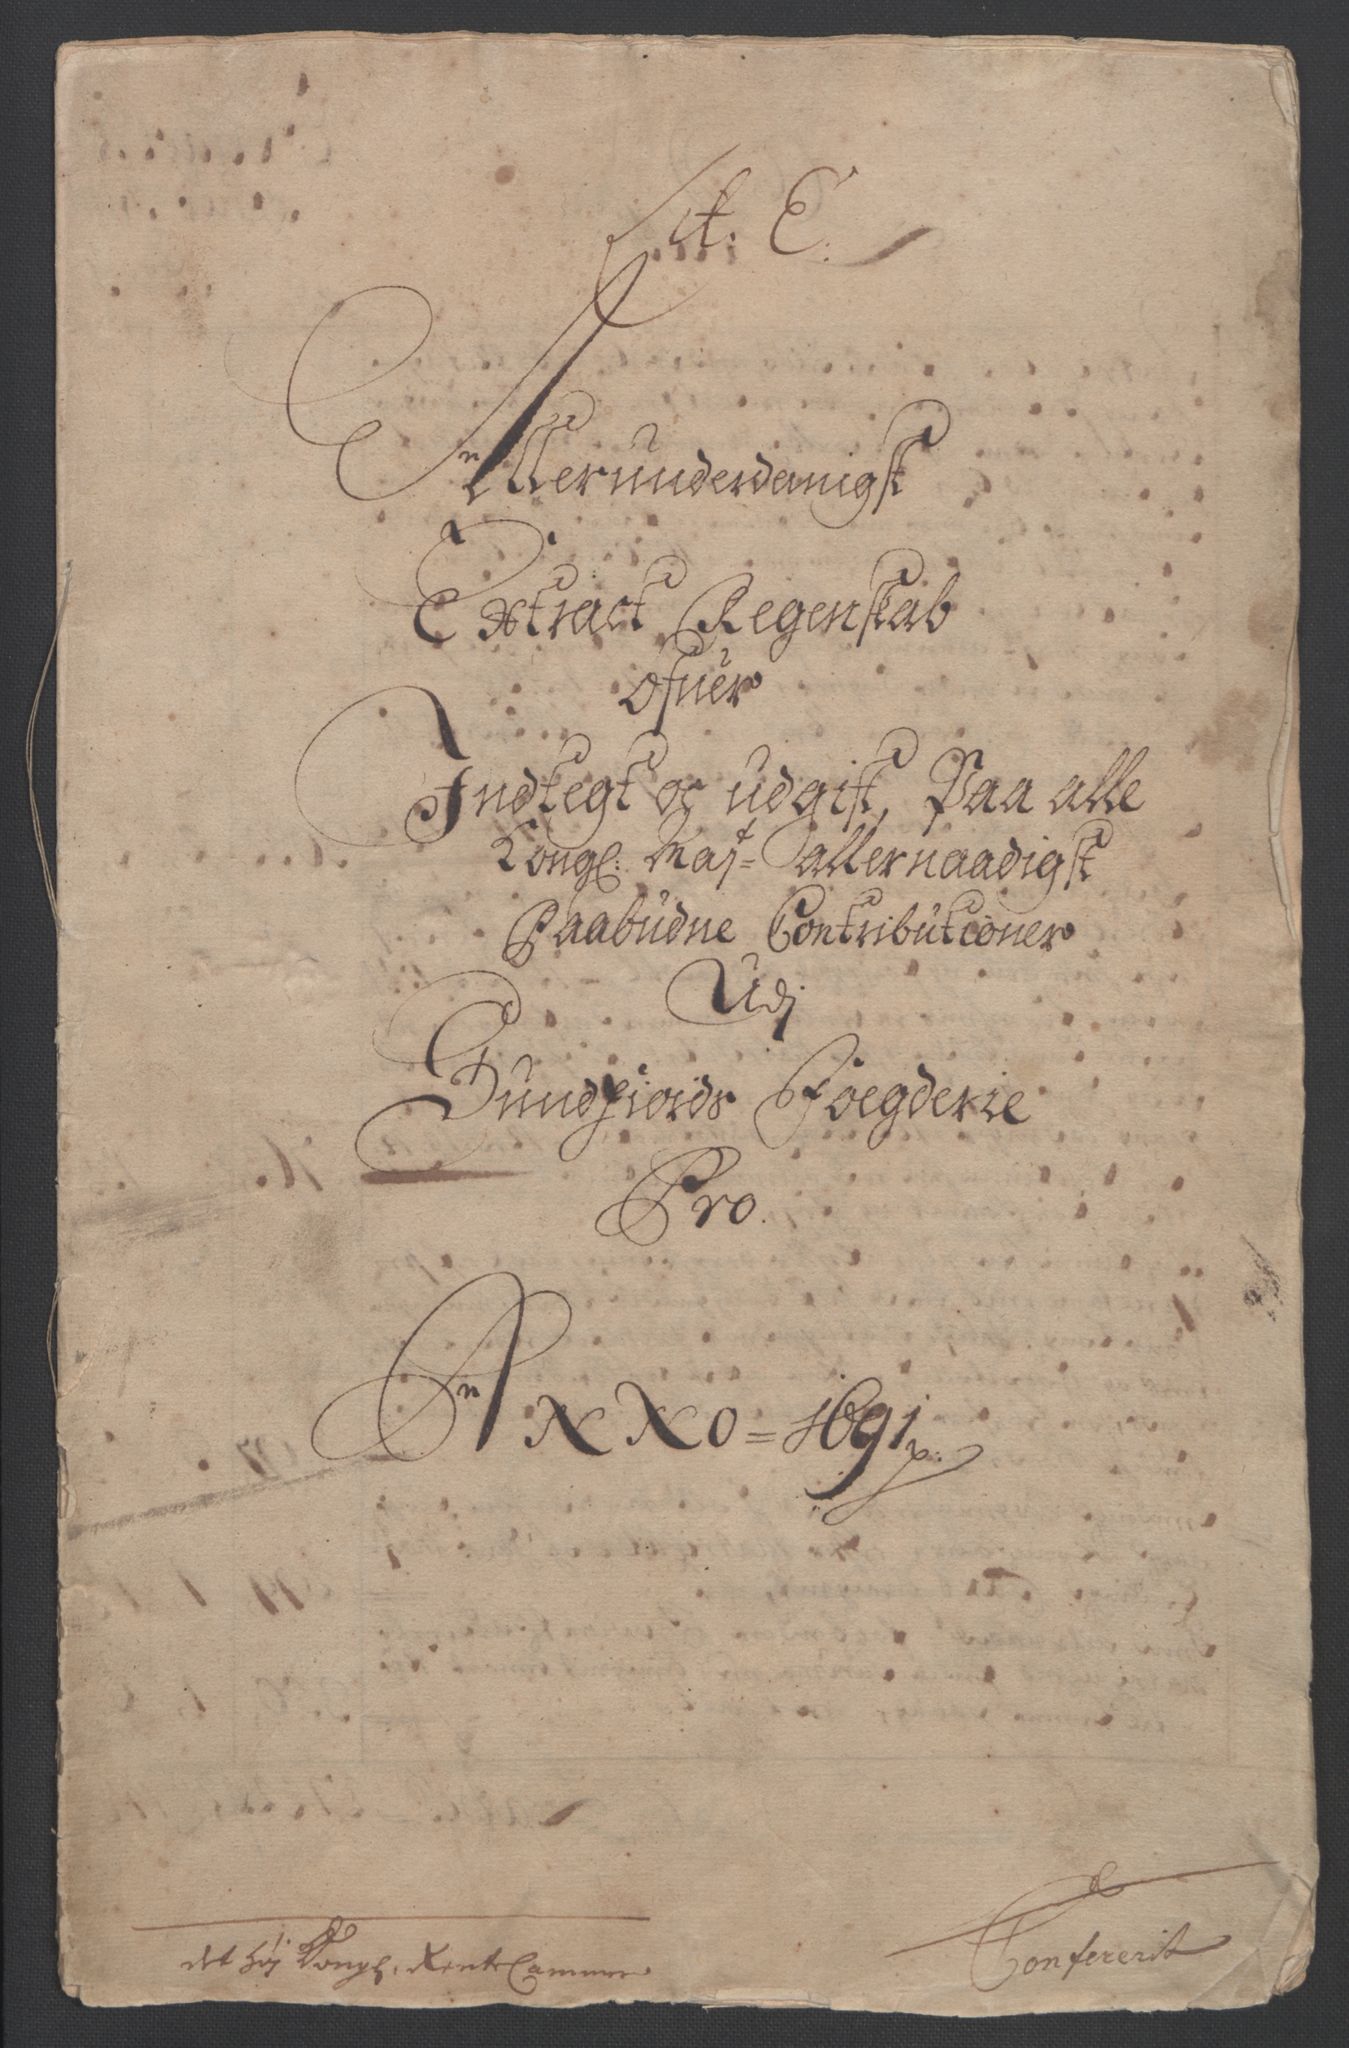 Lit. E.
Allerunderdanigst
Extract Regenskab
ofuer
Indtegt oc udgift, Paa alle
Kongl: Maj:t allernaadigst
Paabudne Contributioner
Udj
Sundfiords Foegderie
Pro.
ANNO = 1691
det høj Kongl. RenteCammer
Confererit